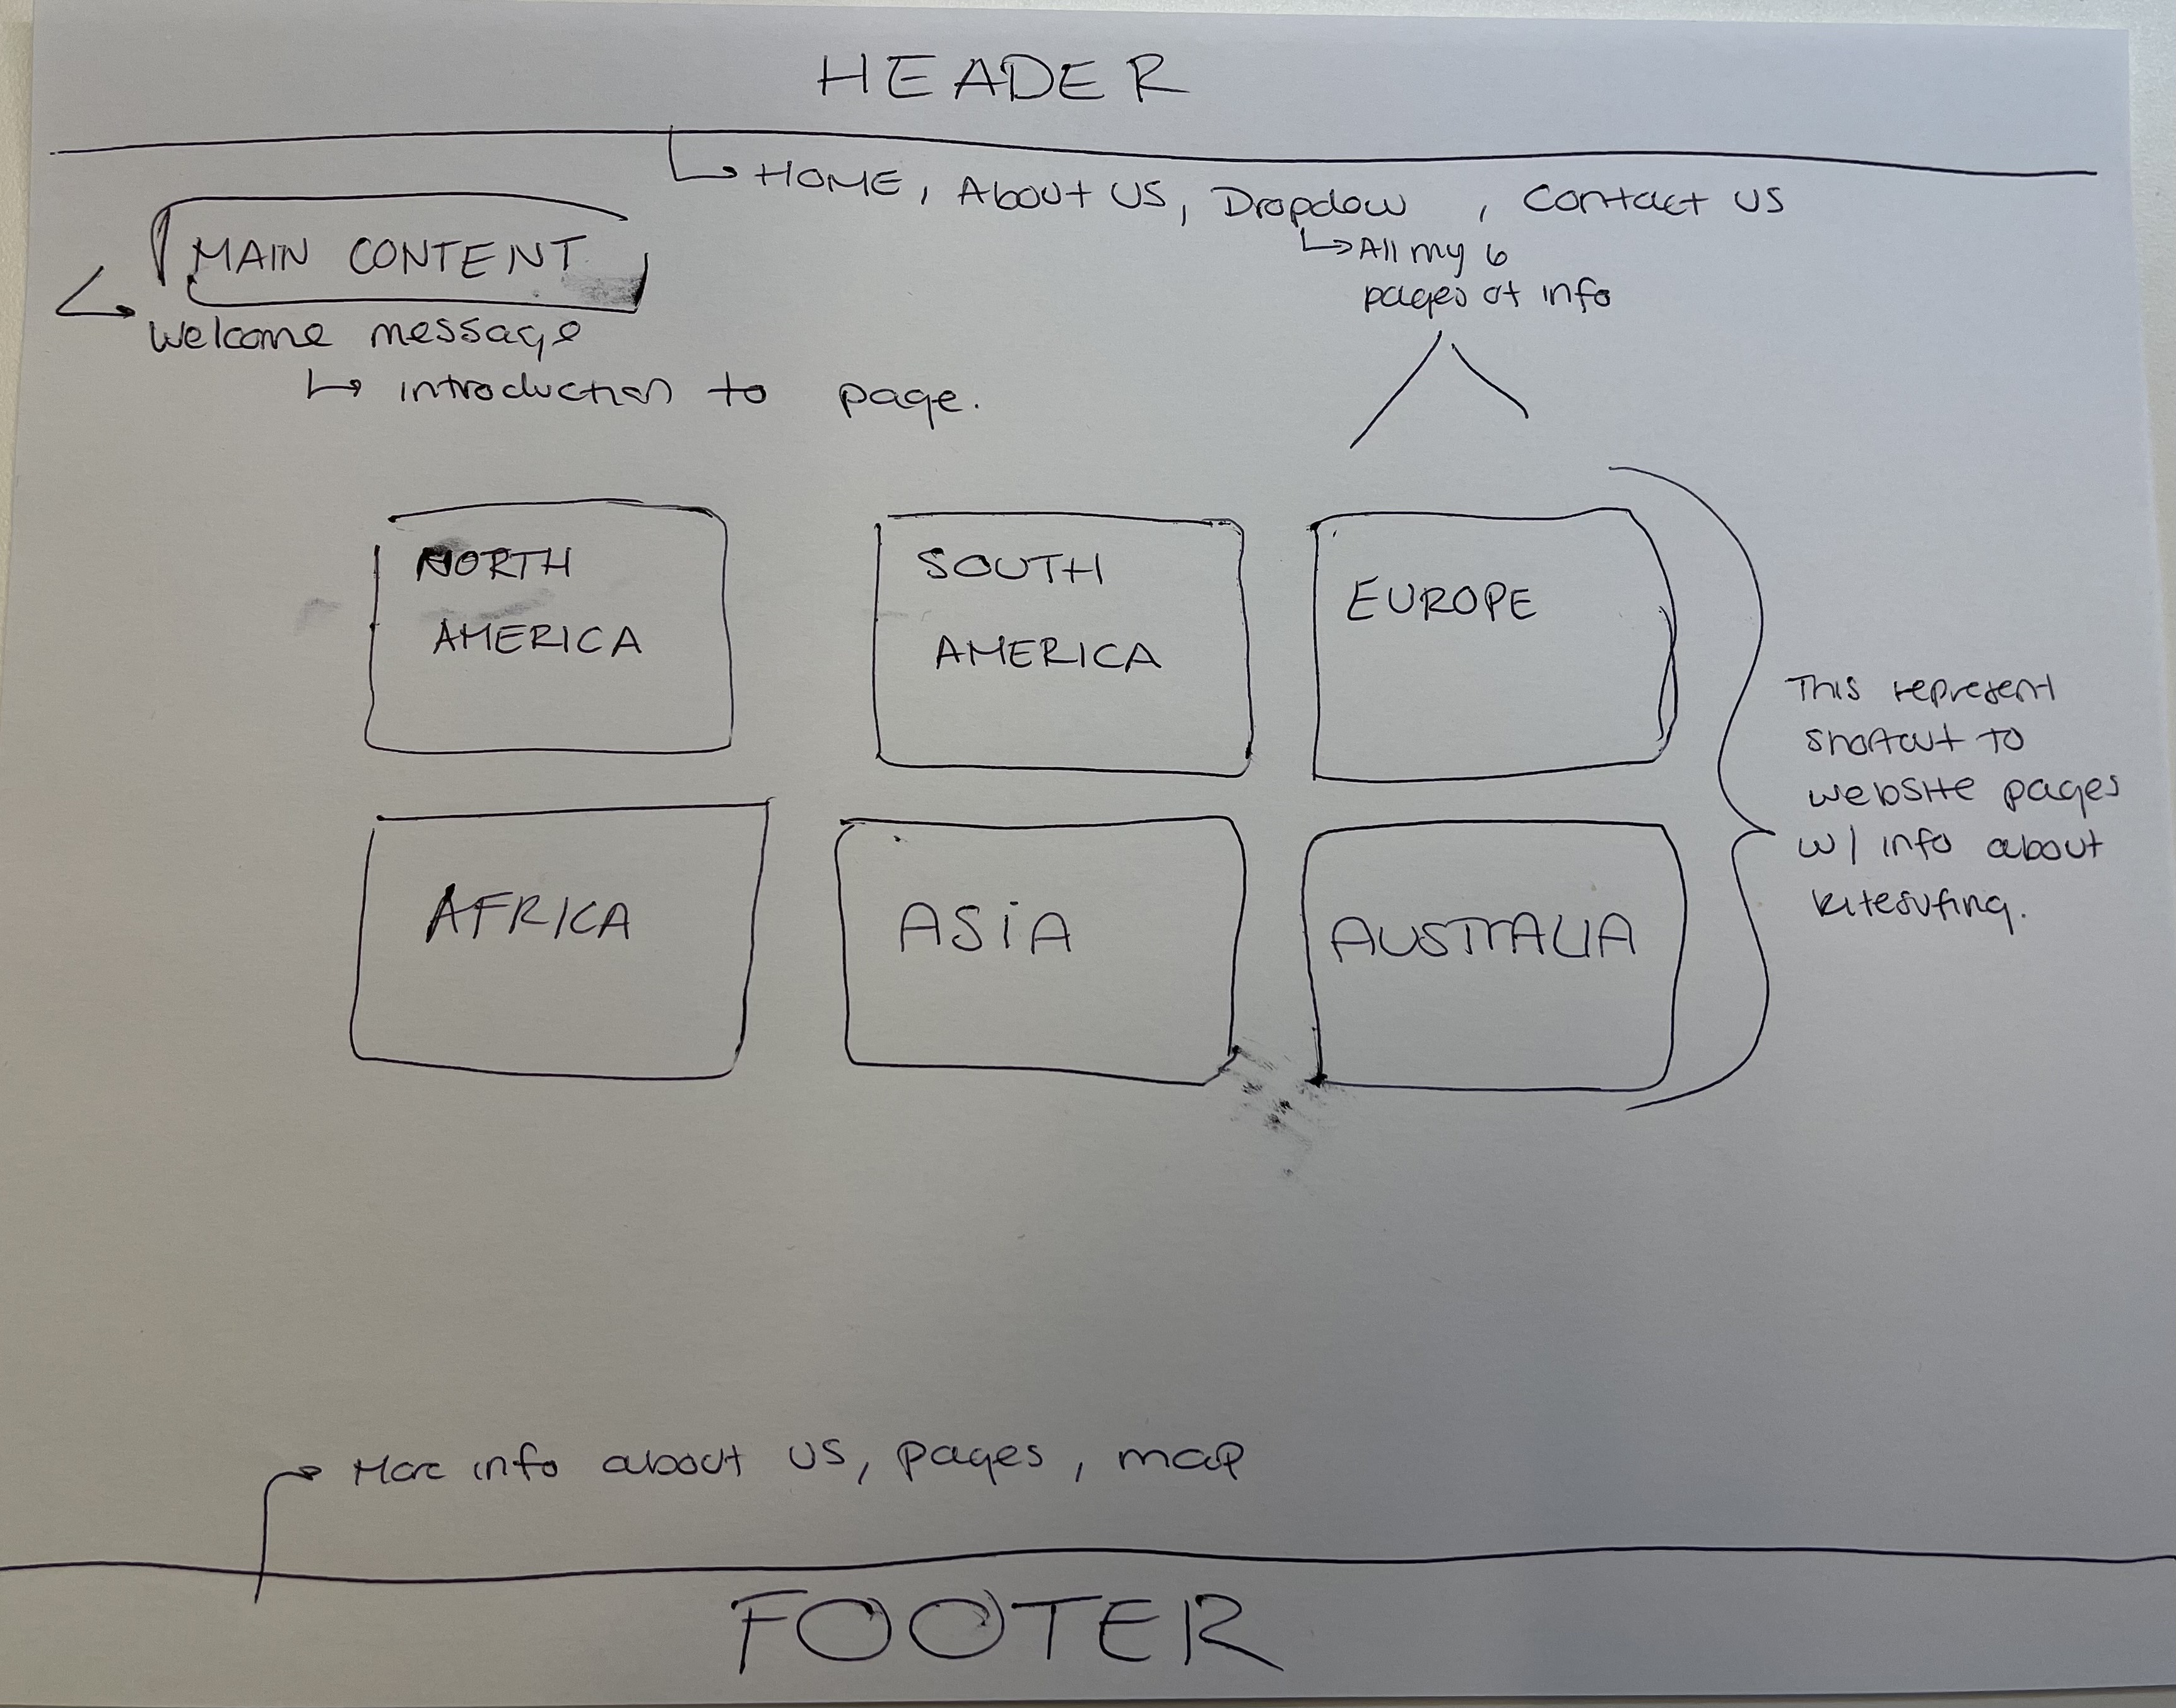 HEADER
HOME, About US, Dropdow , Contact US
All my 6
pages of info
MAIN CONTENT
Welcome message
introduction to page.
NORTH
AMERICA
SOUTH
AMERICA
EUROPE
AFRICA
ASiA
AUSTRALIA
This represent
shortcut to
website pages
w/ info about
kitesufing.
More info about us, pages, map
FOOTER